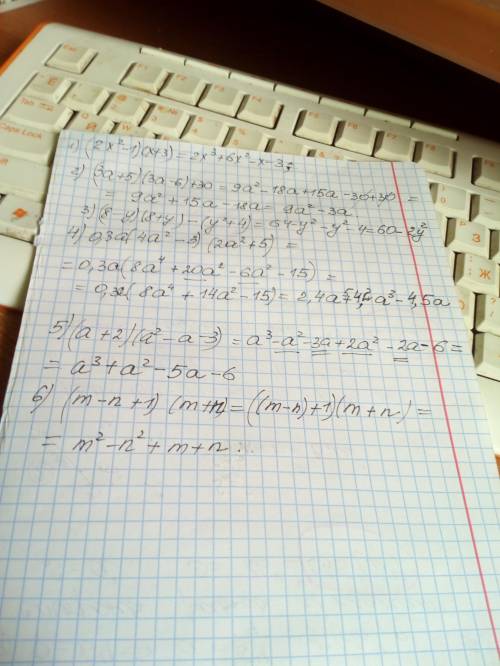 1) (2x²-1)(x+3) = 2x³+6x²-x-3;
2) (3a+5)(3a-6)+30 = 9a²-18a+15a-30+30 =
= 9a²+15a-18a = 9a²-3a.
3) (8-y)(8+y)-(y²+4) = 64-y²-y²-4 = 60-2y²
4) 0,3a(4a²-3)(2a²+5) =
= 0,3a(8a⁴+20a²-6a²-15) =
= 0,3a(8a⁴+14a²-15) = 2,4a⁵+4,2a³-4,5a
5) (a+2)(a²-a-3) = a³-a²-3a+2a²-2a-6 =
= a³+a²-5a-6
6) (m-n+1)(m+n) = ((m-n)+1)(m+n) =
= m²-n²+m+n.
Esc
F1
F2
F3
F4
Tab
Caps Lock
Shift